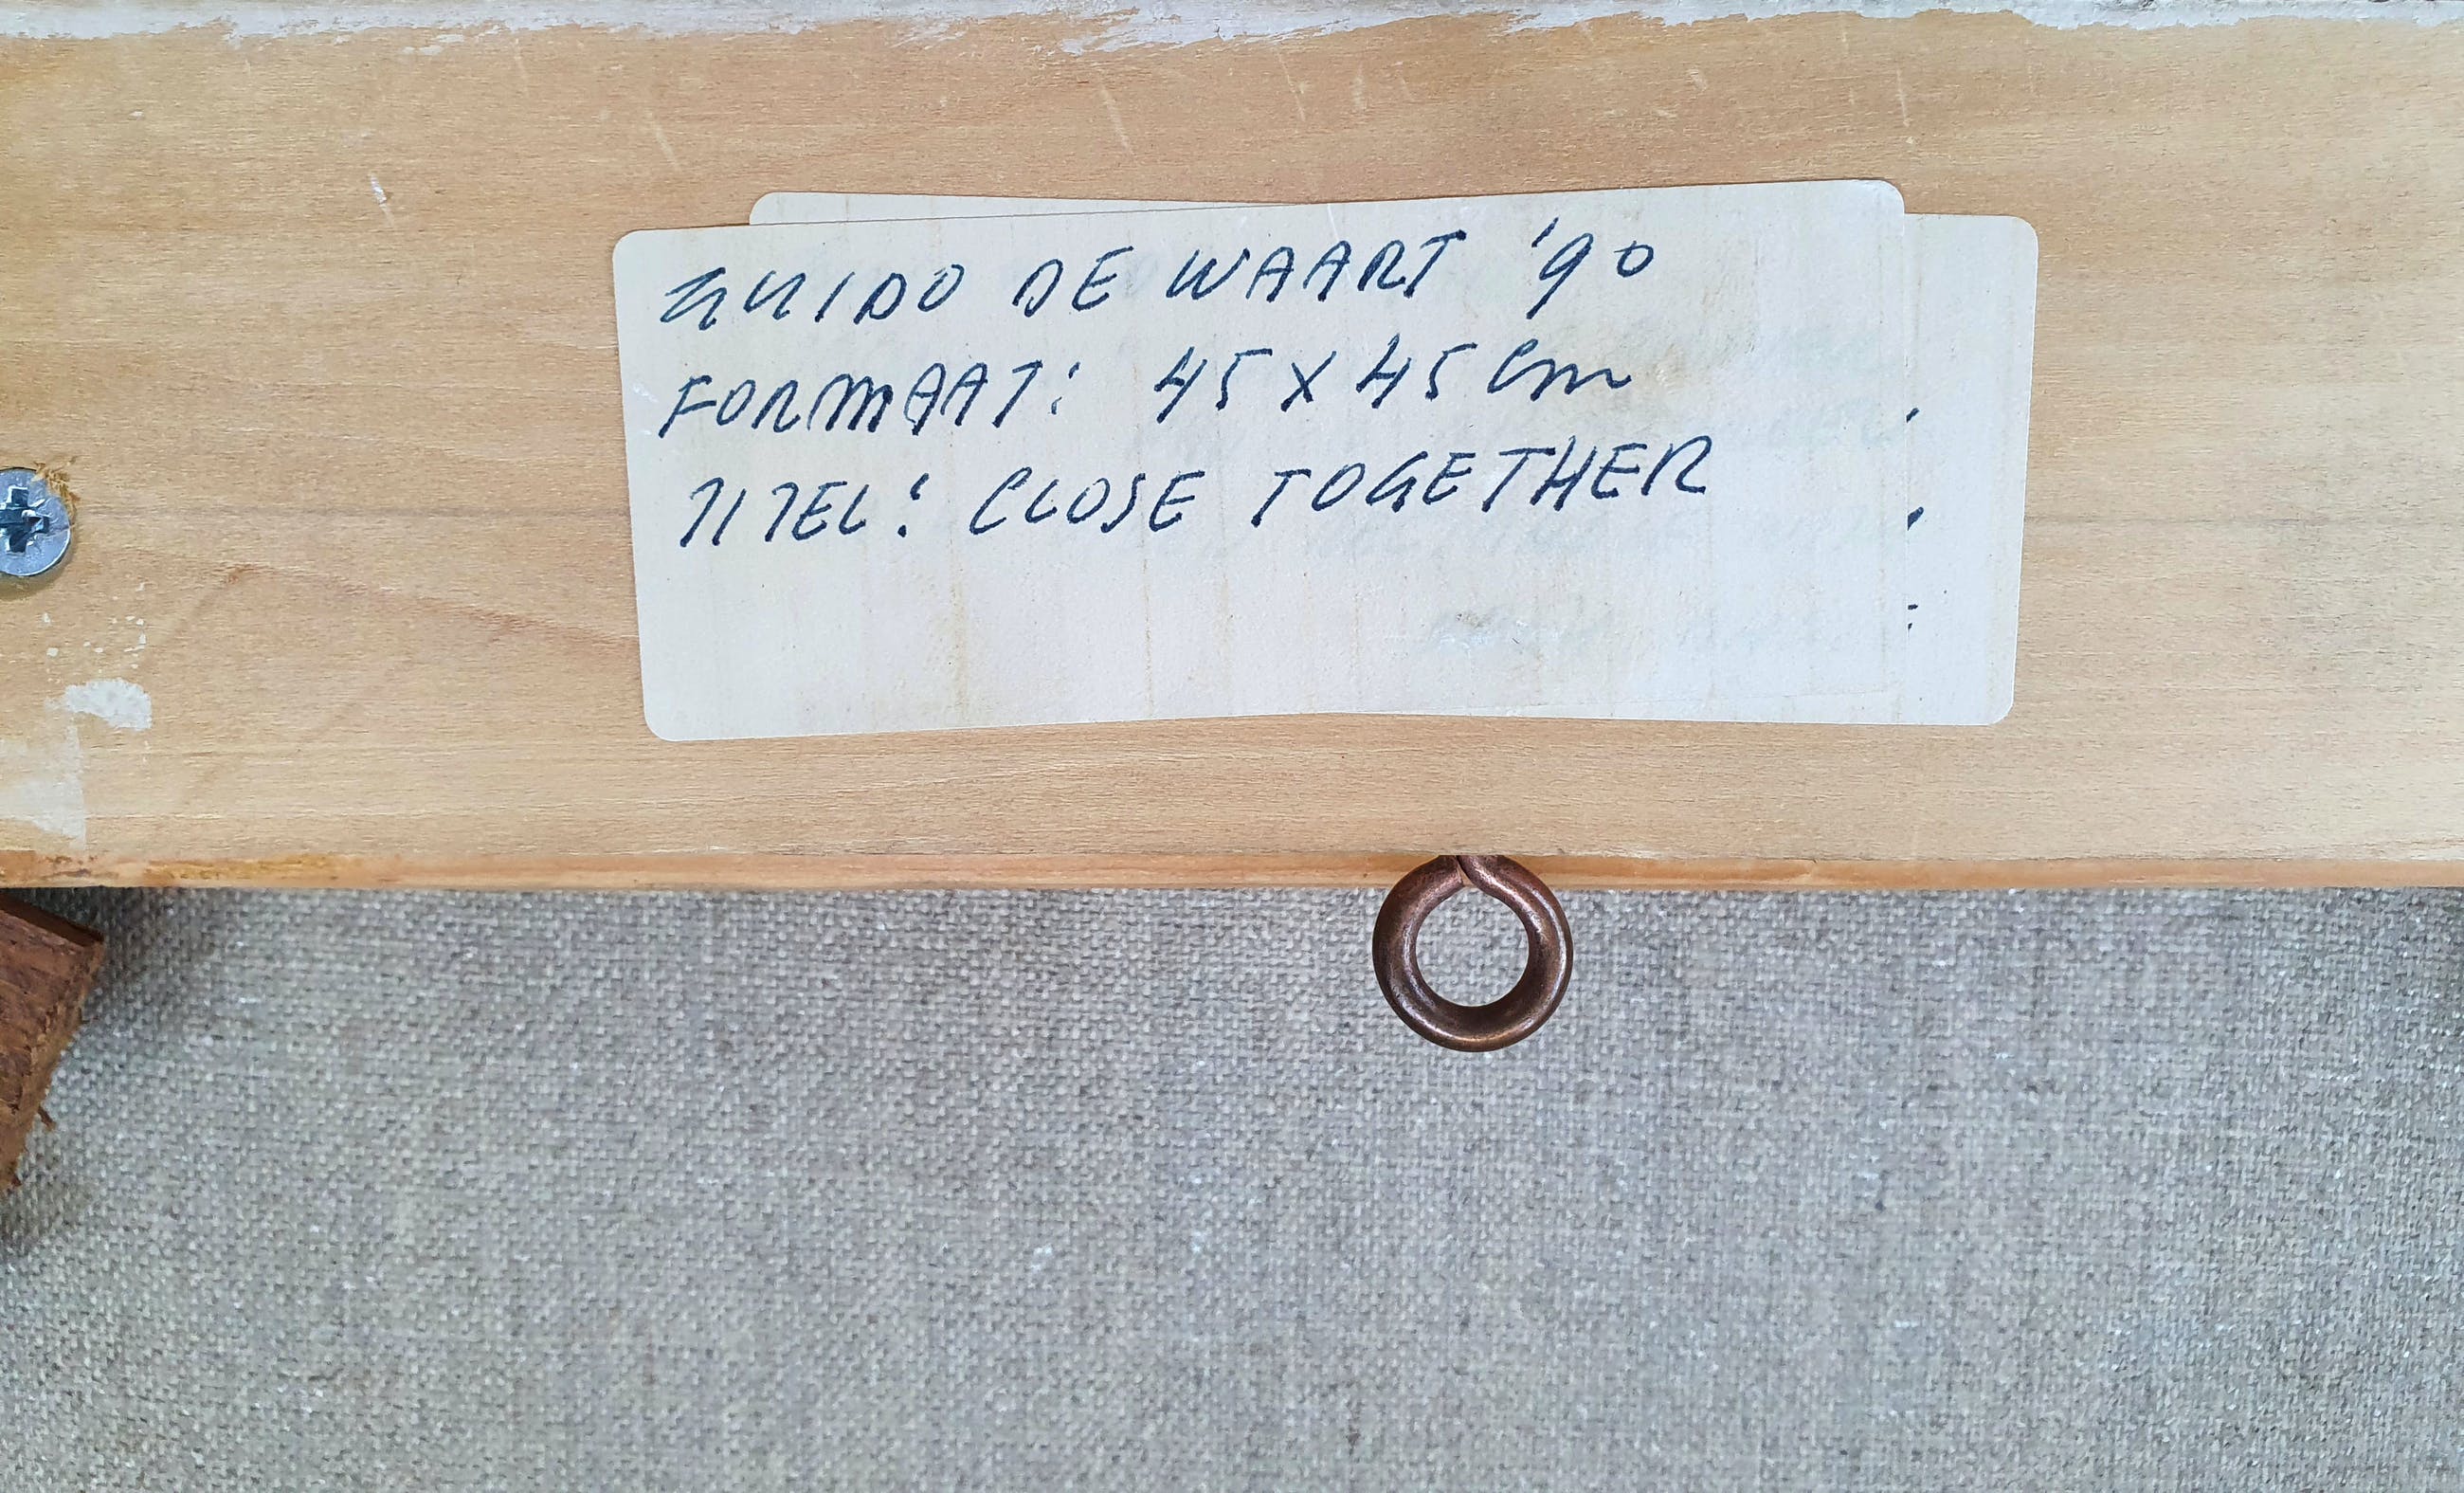 GUIDO DE WAART '90
FORMAAT: 45 X 45 cm
TITEL: CLOSE TOGETHER